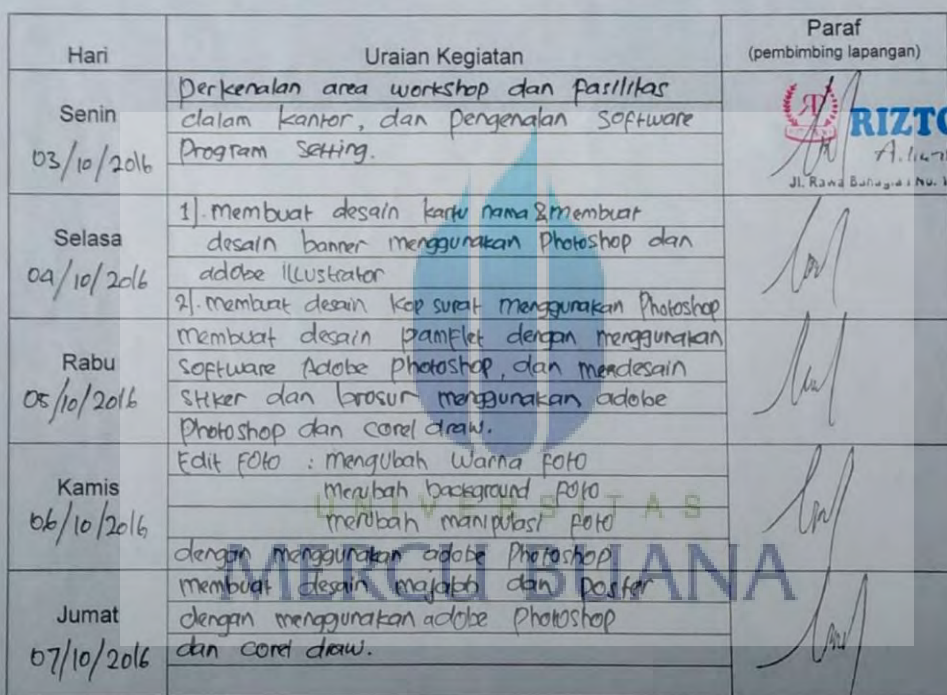 Hari Uraian Kegiatan Paraf
(pembimbing lapangan)
Senin
03/10/2016
Perkenalan area workshop dan fasilitas
dalam kantor, dan pengenalan software
Program Setting.
RIZTO
Jl. Rawa
Selasa
04/10/2016
1). membuat desain kartu nama & membuat
desain banner menggunakan Photoshop dan
adobe illustrator
2). membuat desain kop surat menggunakan Photoshop
Rabu
05/10/2016
membuat desain pamflet dengan menggunakan
software Adobe photoshop, dan mendesain
stiker dan brosur menggunakan adobe
Photoshop dan corel draw.
Kamis
06/10/2016
Edit Foto : mengubah warna foto
merubah background foto
merubah manipulasi foto
dengan menggunakan adobe Photoshop
UNIVERSITAS
MERCU BUANA
Jumat
07/10/2016
membuat desain majalah dan poster
dengan menggunakan adobe Photoshop
dan corel draw.